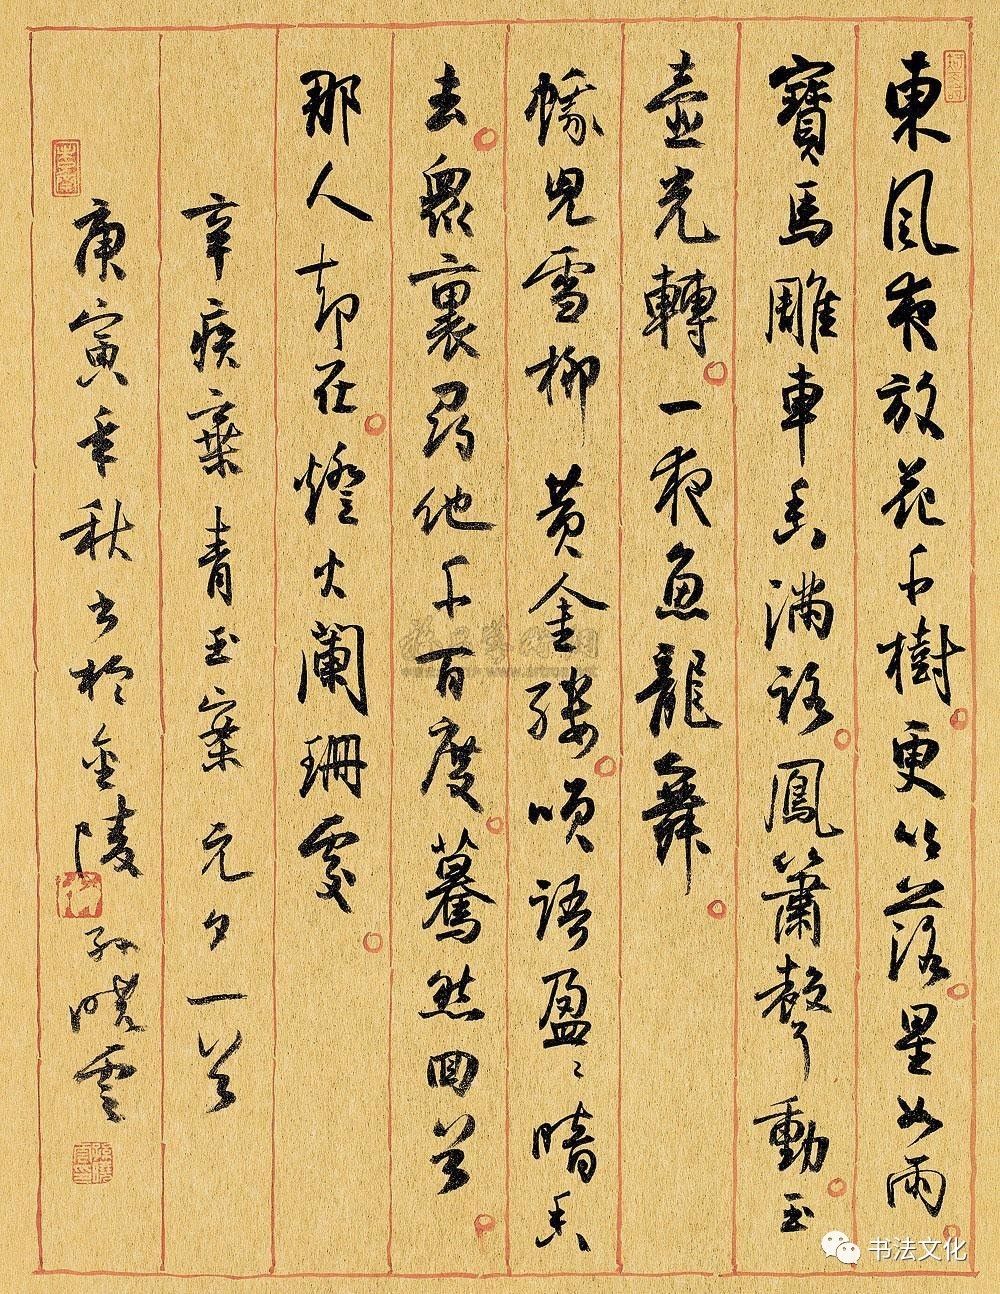 東風夜放花千樹更吹落星如雨
寶馬雕車香滿路鳳簫聲動玉
壺光轉一夜魚龍舞
蛾兒雪柳黃金縷笑語盈〻暗香
去衆裏尋他千百度驀然回首
那人却在燈火闌珊處
辛疾棄青玉案元夕一首
庚寅年秋書於金陵孫曉雲
书法文化